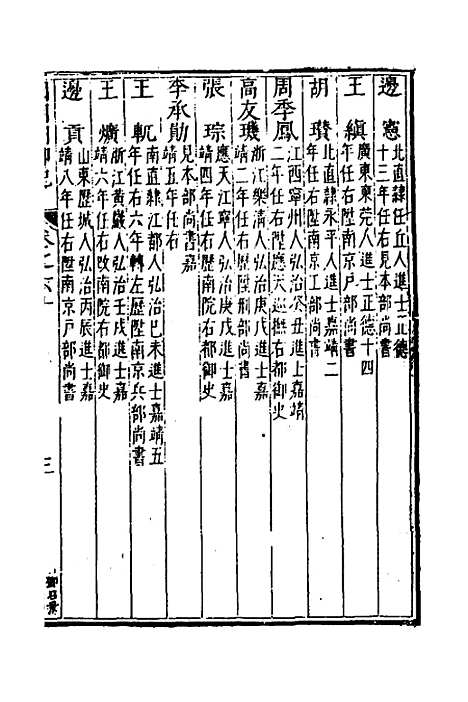 邊憲
北直隸任丘人進士正德
十三年任右見本部尚書
王縝
廣東東莞人進士正德十四
年任右陞南京戶部尚書
胡瓚
北直隸永平人進士嘉靖二
年任右陞南京工部尚書
周季鳳
江西寧州人弘治癸丑進士嘉靖
二年任右陞應天巡撫右都御史
高友璣
浙江樂清人弘治庚戌進士嘉
靖二年任右歷陞刑部尚書
張琮
應天江寧人弘治庚戌進士嘉
靖四年任右歷南院右都御史
李承勛
見本部尚書嘉
靖五年任右
王軏
南直隸江都人弘治己未進士嘉靖五
年任右六年轉左歷陞南京兵部尚書
王爌
浙江黃巖人弘治壬戌進士嘉
靖六年任右改南院右都御史
邊貢
山東歷城人弘治丙辰進士嘉
靖八年任右陞南京戶部尚書
卷之六十
三